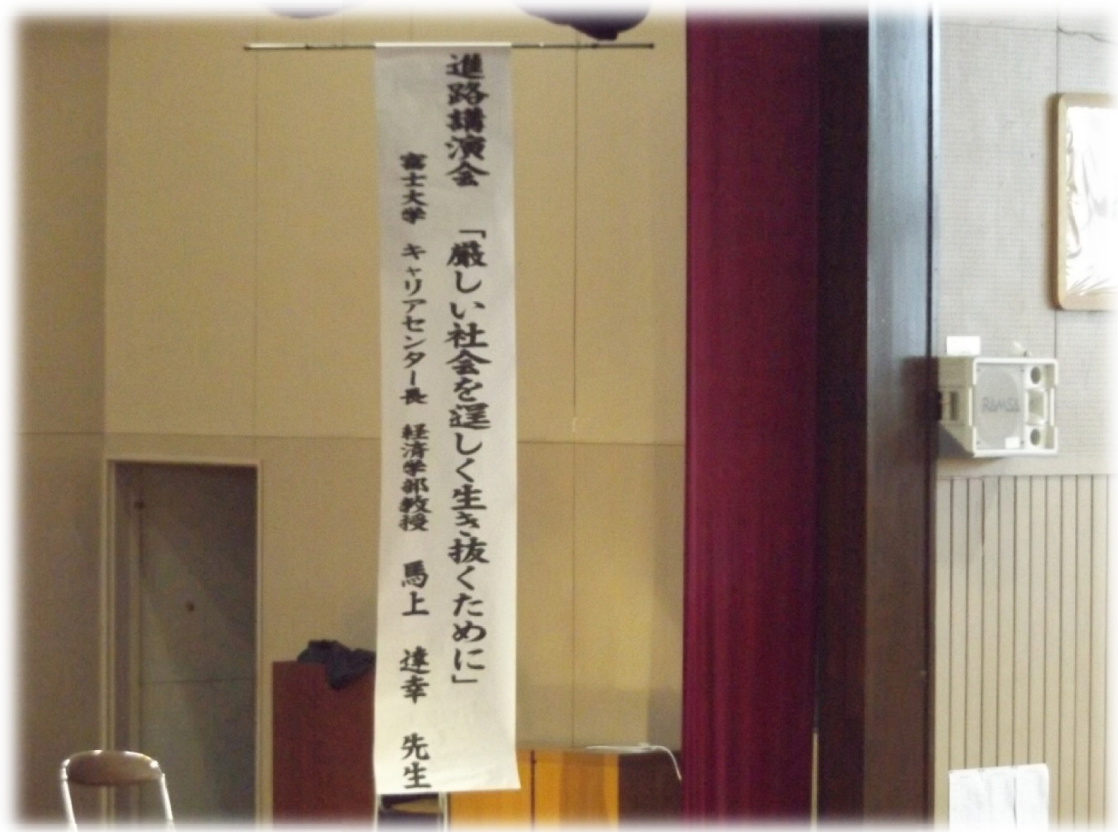 進路講演会 「厳しい社会を逞しく生き抜くために」
富士大学 キャリアセンター長 経済学部教授 馬上 達幸 先生
RAMSA